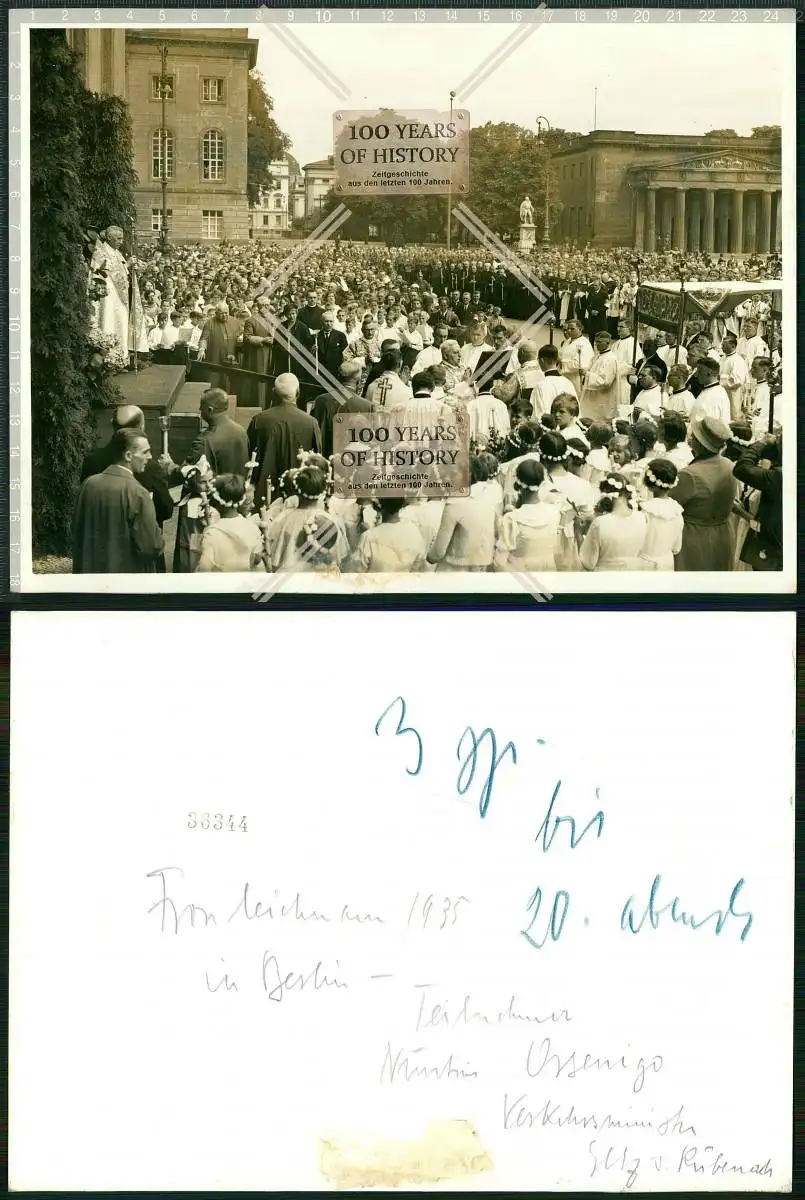 2 3 4 5 6 7 8 9 10 11 12 13 14 15 16 17 18 19 20 21 22 23 24
1 2 3 4 5 6 7 8 9 10 11 12 13 14 15 16 17 18
100 YEARS
OF HISTORY
Zeitgeschichte
aus den letzten 100 Jahren.
100 YEARS
OF HISTORY
Zeitgeschichte
aus den letzten 100 Jahren.
3
bis
36344
20. abends
Fronleichnam 1935
in Berlin -
Teilnehmer
Nuntius Orsenigo
Verkehrsminister
Eltz v. Rübenach